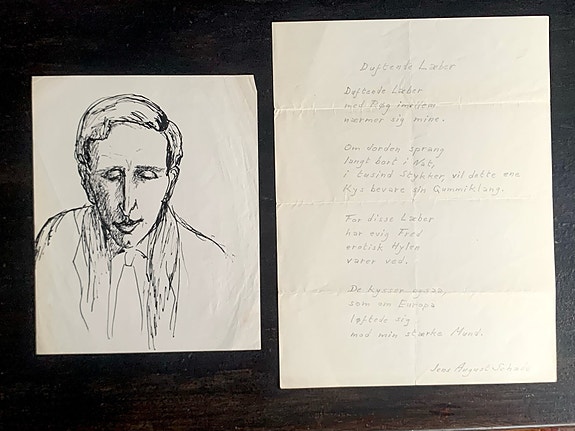 Duftende Læber
Duftende Læber
med Røg imellem
nærmer sig mine.
Om Jorden sprang
langt bort i Nat,
i tusind Stykker, vil dette ene
Kys bevare sin Gummiklang.
For disse Læber
har evig Fred
erotisk Hylen
varer ved.
De kysser ogsaa,
som om Europa
løftede sig
mod min stærke Mund.
Jens August Schade